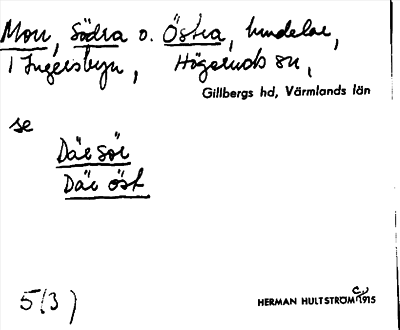 Mon, Södra o. Östra, hemdelar,
i Ingersbyn, Högeruds sn,
Gillbergs hd, Värmlands län
se
Där sör
Där öst
5(3)
HERMAN HULTSTRÖM 1915